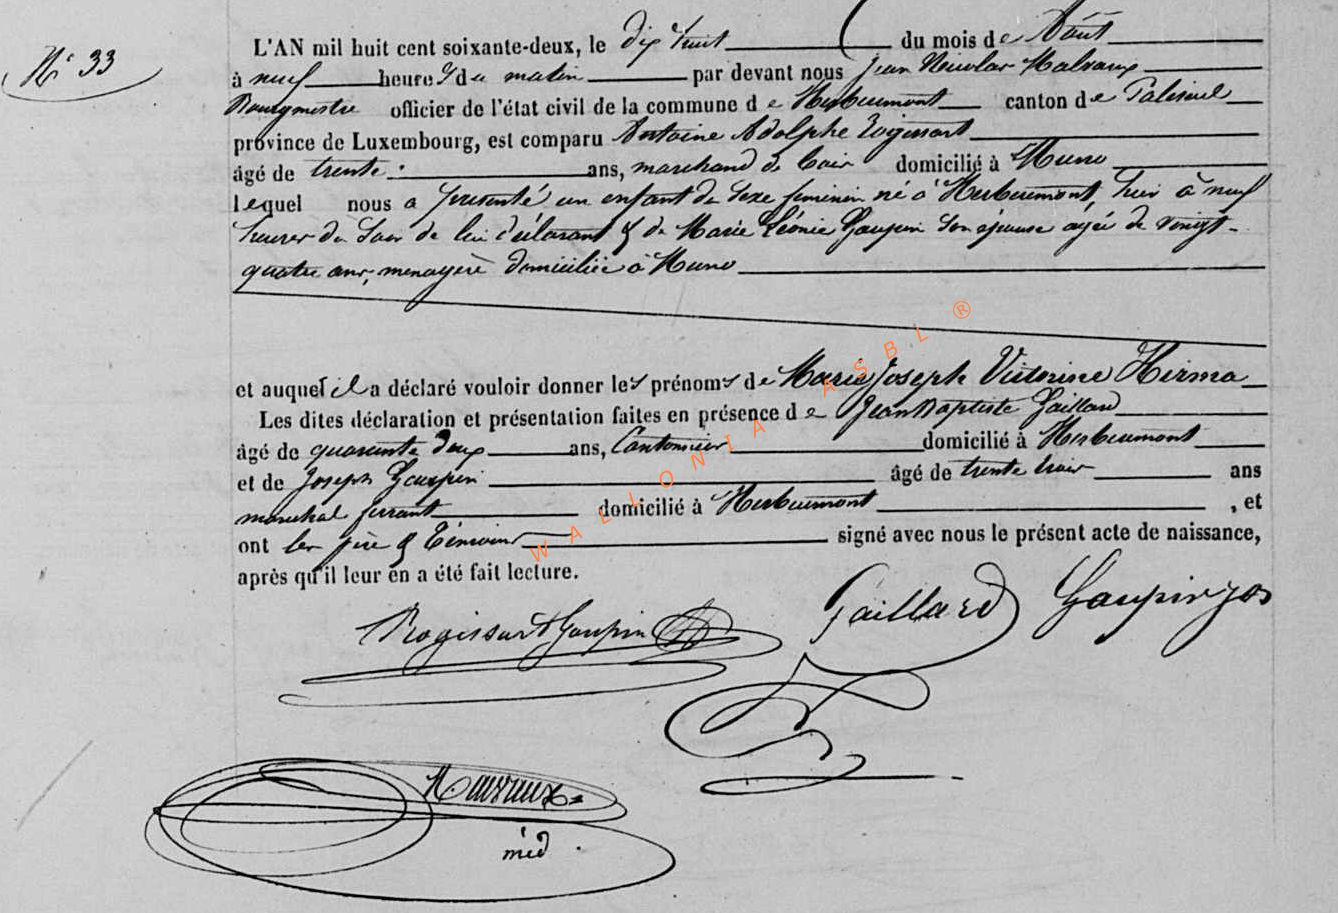 N° 33
L'AN mil huit cent soixante-deux, le dix huit du mois de Août
à neuf heures du matin par devant nous Jean Nicolas Malvaux
Bourgmestre officier de l'état civil de la commune de Herbeumont canton de Paliseul
province de Luxembourg, est comparu Antoine Adolphe Rogissart
âgé de trente ans, marchand de bois domicilié à Muno
lequel nous a présenté un enfant du sexe feminin né à Herbeumont, hier à neuf
heures du soir de lui déclarant & de Marie Léonie Goupin son épouse agée de vingt-
quatre ans, menagère domiciliée à Muno
et auquel il a déclaré vouloir donner les prénoms de Marie Joseph Victorine Hirma
Les dites déclaration et présentation faites en présence de Jean Baptiste Gaillard
âgé de quarante deux ans, Cantonnier domicilié à Herbeumont
et de Joseph Goupin âgé de trente trois ans
marechal ferrant domicilié à Herbeumont , et
ont les père & témoins signé avec nous le présent acte de naissance,
après qu'il leur en a été fait lecture.
Rogissart Goupin Gaillard Goupin Jos
Malvaux
WALLONIA ASBL ®